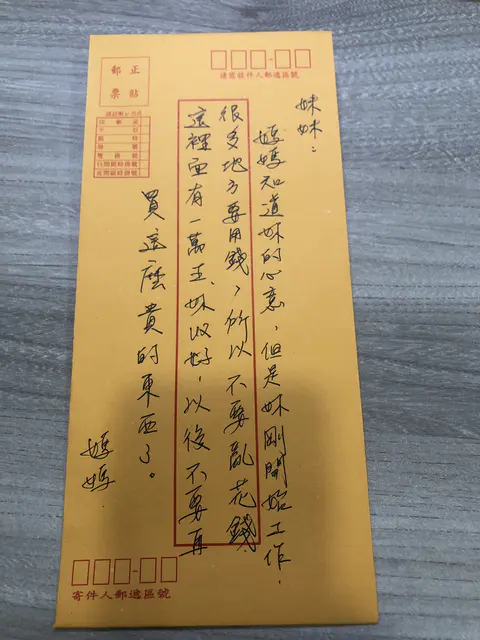 妹妹：
媽媽知道妹的心意，但是妹剛開始工作，
很多地方要用錢，所以不要亂花錢
這裡面有一萬五、妹收好，以後不要再
買這麼貴的東西了。
媽媽.
請寫收件人郵遞區號
正貼
郵票
寄件人郵遞區號